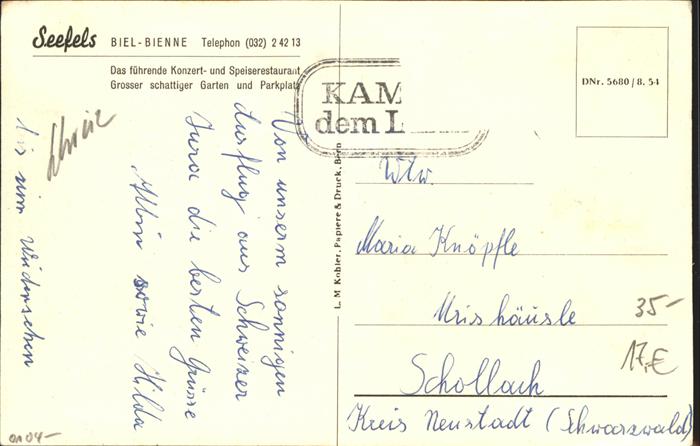 Seefels BIEL-BIENNE Telephon (032) 2 42 13
Das führende Konzert- und Speiserestaurant
Grosser schattiger Garten und Parkplatz
KAM
dem L
DNr. 5680 / 8. 54
Von unserm sonnigen
Ausflug aus Schweizer
Jura die besten Grüsse
Albin sowie Hilda
bis zum Wiedersehen
L. M. Kohler, Papiere & Druck, Bern
Wtw.
Maria Knöpfle
Urishäusle
Schollach
Kreis Neustadt (Schwarzwald)
35-
17,€
0104-